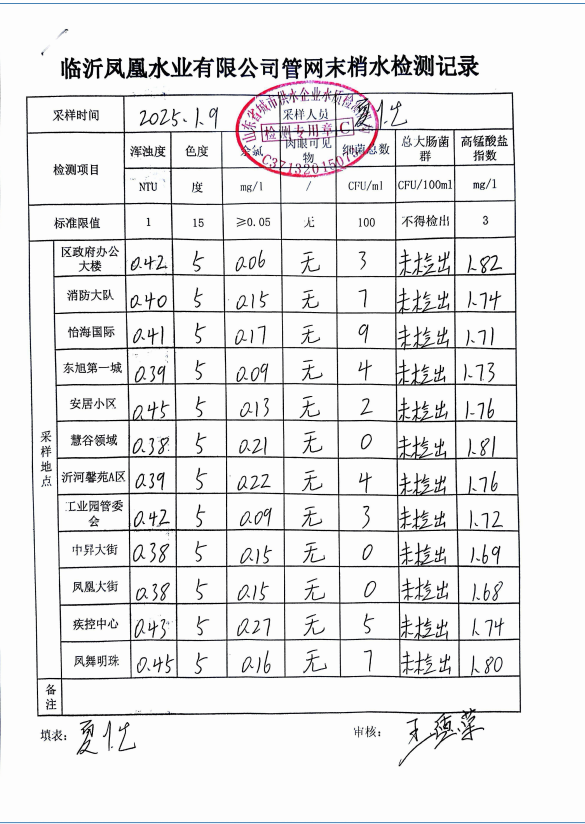 临沂凤凰水业有限公司管网末梢水检测记录
采样时间 2025.1.9 采样人员
检测项目 浑浊度 色度 余氯 肉眼可见物 细菌总数 总大肠菌群 高锰酸盐指数
NTU 度 mg/l / CFU/ml CFU/100ml mg/l
标准限值 1 15 ≥0.05 无 100 不得检出 3
采样地点
区政府办公大楼 0.42 5 0.06 无 3 未检出 1.82
消防大队 0.40 5 0.15 无 7 未检出 1.74
怡海国际 0.41 5 0.17 无 9 未检出 1.71
东旭第一城 0.39 5 0.09 无 4 未检出 1.73
安居小区 0.45 5 0.13 无 2 未检出 1.76
慧谷领域 0.38 5 0.21 无 0 未检出 1.81
沂河馨苑A区 0.39 5 0.22 无 4 未检出 1.76
工业园管委会 0.42 5 0.09 无 3 未检出 1.72
中昇大街 0.38 5 0.15 无 0 未检出 1.69
凤凰大街 0.38 5 0.15 无 0 未检出 1.68
疾控中心 0.43 5 0.27 无 5 未检出 1.74
凤舞明珠 0.45 5 0.16 无 7 未检出 1.80
备注
填表: 审核:
山东省城市供水企业水质检测
检测专用章C